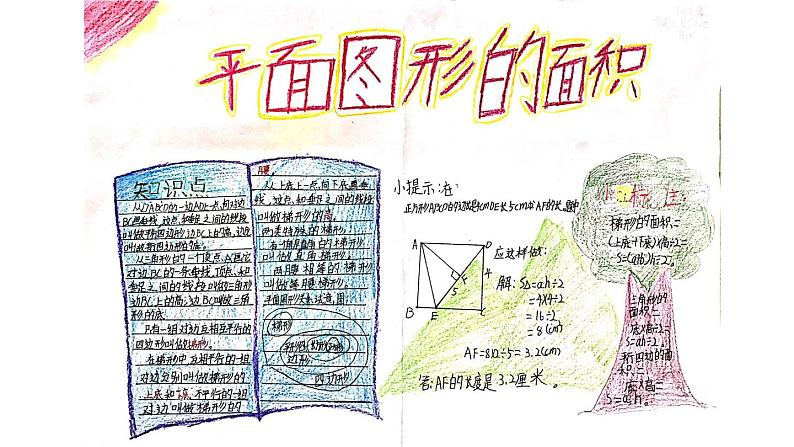 平面图形的面积
知识点
从▱ABCD的一边AD上一点向对边
BC画垂线,这点和垂足之间的线段
叫做平行四边形BC上的高,边BC
叫做平行四边形的底。
从三角形的一个顶点A到它
对边BC的一条垂线,顶点和
垂足之间的线段叫做三角形
边BC上的高,边BC叫做三角
形的底。
只有一组对边互相平行的
四边形叫做梯形。
在梯形中互相平行的一组
对边分别叫做梯形的
上底和下底,不平行的一组
对边叫做梯形的
腰。
从上底上一点向下底画垂
线,这点和垂足之间的线段
叫做梯形的高。
两类特殊的梯形。
有一个角是直角的梯形
叫做直角梯形。
两腰相等的梯形
叫做等腰梯形。
平面图形关系示意图:
梯形
四边形
小提示:在
正方形ABCD的边长是4cm DE长5cm求AF的长。
A
D
4
F
5
B
E
C
应这样做:
解:S△=ah÷2
=4×4÷2
=16÷2
=8(cm)
AF=8×2÷5=3.2(cm)
答:AF的长度是3.2厘米。
小标注
梯形的面积=
(上底+下底)×高÷2
S=(a+b)h÷2
三角形的
面积=
底×高÷2
S=ah÷2
平行四边形的面
积=
底×高
S=ah